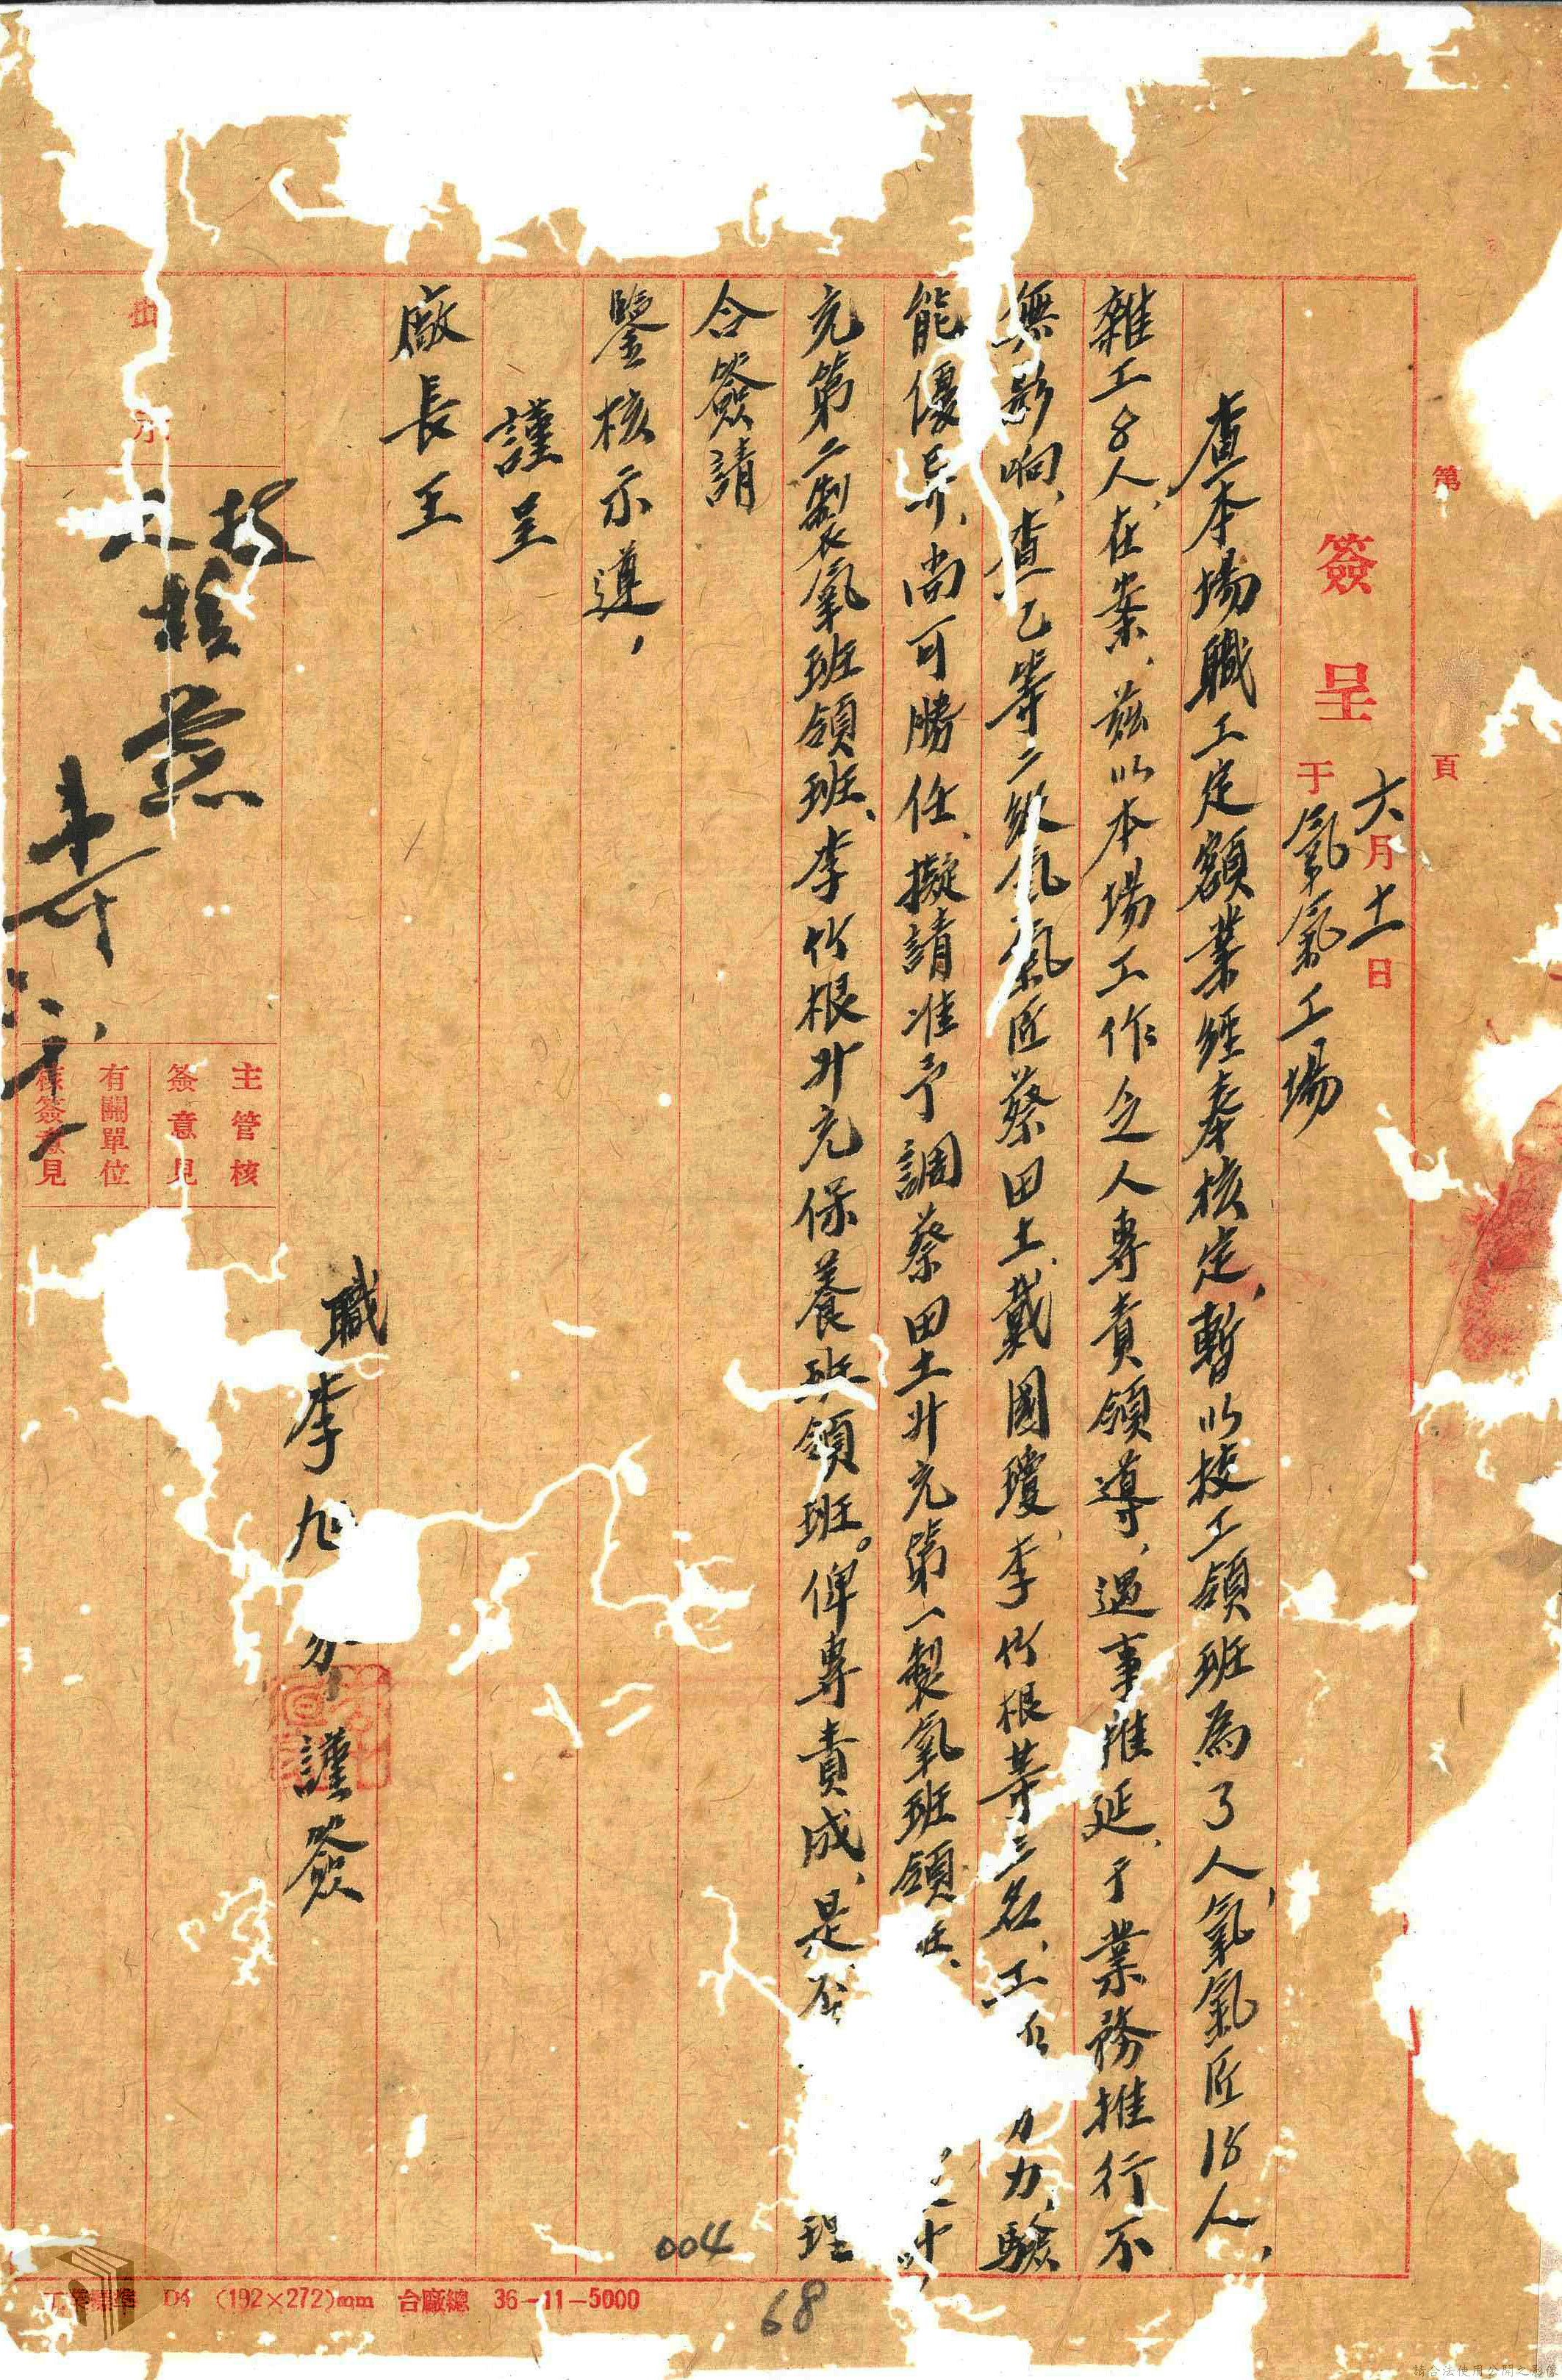 第 頁
簽呈 六月十一日
于氧氣工場
查本場職工定額業經奉核定、暫以技工領班為3人、氧氣匠18人、
雜工8人、在案、茲以本場工作乏人專責領導、遇事推延、于業務推行不
無影响、查乙等二級氧氣匠蔡田土、戴國瓊、李竹根等三名、工 力、驗
能優异、尚可勝任、擬請准予調蔡田土升充第一製氧班領班、
充第二製氧班領班、李竹根升充保養班領班。俾專責成、是否 理
合簽請
鑒核示遵，
謹呈
廠長王
職李旭 謹簽
批 示
主管核
簽意見
有關單位
核簽意見
004
68
D4 (192×272)mm 台廠總 36-11-5000
請合法使用公開之影像